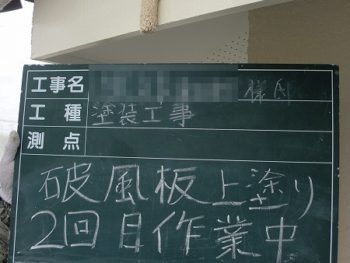 工事名 様邸
工種 塗装工事
測点
破風板上塗り
2回目作業中